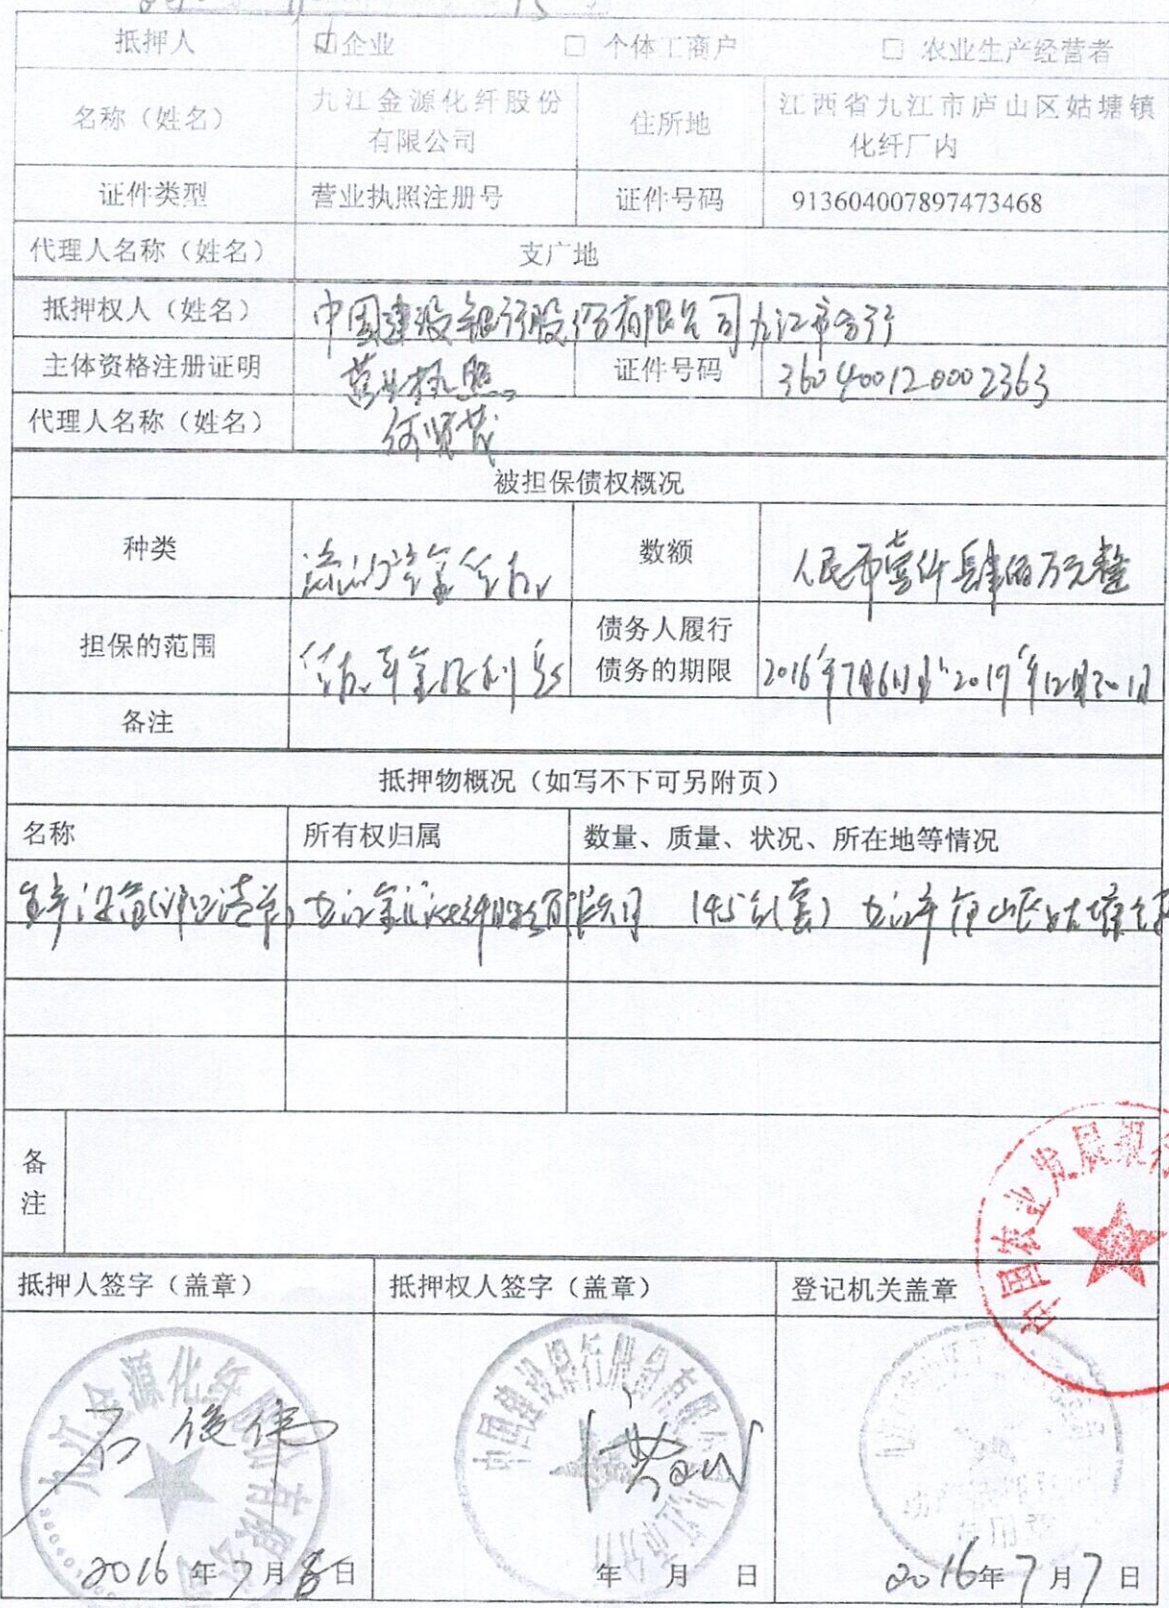 抵押人 ☑企业 □ 个体工商户 □ 农业生产经营者
名称（姓名） 九江金源化纤股份 住所地 江西省九江市庐山区姑塘镇
有限公司 化纤厂内
证件类型 营业执照注册号 证件号码 913604007897473468
代理人名称（姓名） 支广地
抵押权人（姓名） 中国建设银行股份有限公司九江市分行
主体资格注册证明 营业执照 证件号码 360400120002363
代理人名称（姓名） 何贤茂
被担保债权概况
种类 流动资金贷款 数额 人民币壹仟肆佰万元整
担保的范围 贷款本金及利息 债务人履行
债务的期限 2016年7月6日至2019年12月30日
备注
抵押物概况（如写不下可另附页）
名称 所有权归属 数量、质量、状况、所在地等情况
生产设备(详见清单) 九江金源化纤股份有限公司 145台(套) 九江市庐山区姑塘镇
备
注
中国农业发展银行
抵押人签字（盖章） 抵押权人签字（盖章） 登记机关盖章
九江金源化纤股份有限公司 中国建设银行股份有限公司九江市分行
石俊伟
2016年7月6日 年 月 日 2016年7月7日